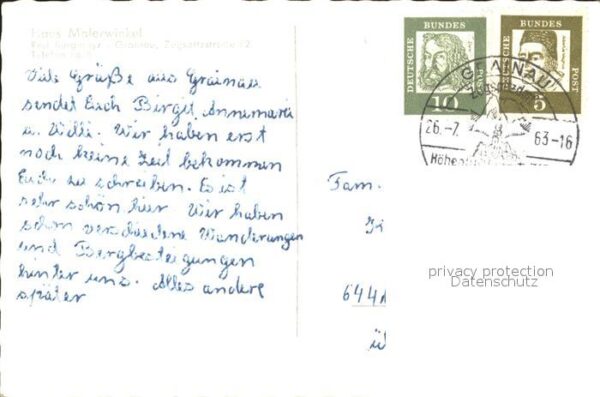 Haus Malerwinkel
Grainau, Zugspitzstraße
Viele Grüße aus Grainau
sendet Euch Birgit, Annemarie
u. Willi. Wir haben erst
noch keine Zeit bekommen
Euch zu schreiben. Es ist
sehr schön hier Wir haben
schon verschiedene Wanderungen
und Bergbesteigungen
hinter uns. Alles andere
später
DEUTSCHE BUNDESPOST
10
DEUTSCHE BUNDESPOST
5
GRAINAU
26.-7. 63-16
Fam.
644
ü
privacy protection
Datenschutz